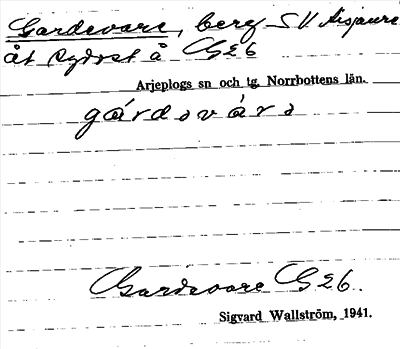 Gardevare, berg SV Aisjaure
åt sydost å G26
Arjeplogs sn och tg. Norrbottens län.
gárdəvárə
Gardevare G26.
Sigvard Wallström, 1941.